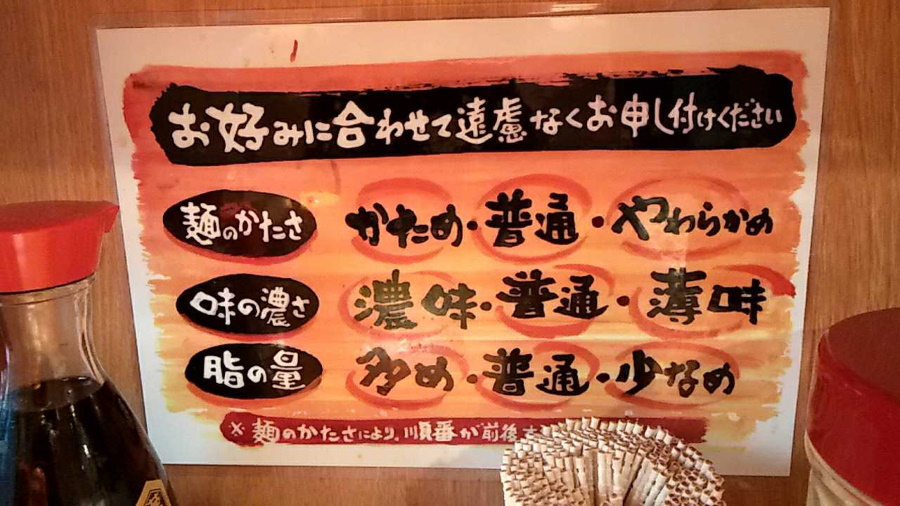 お好みに合わせて遠慮なくお申し付けください
麺のかたさ かため・普通・やわらかめ
味の濃さ 濃味・普通・薄味
脂の量 多め・普通・少なめ
※麺のかたさにより、順番が前後